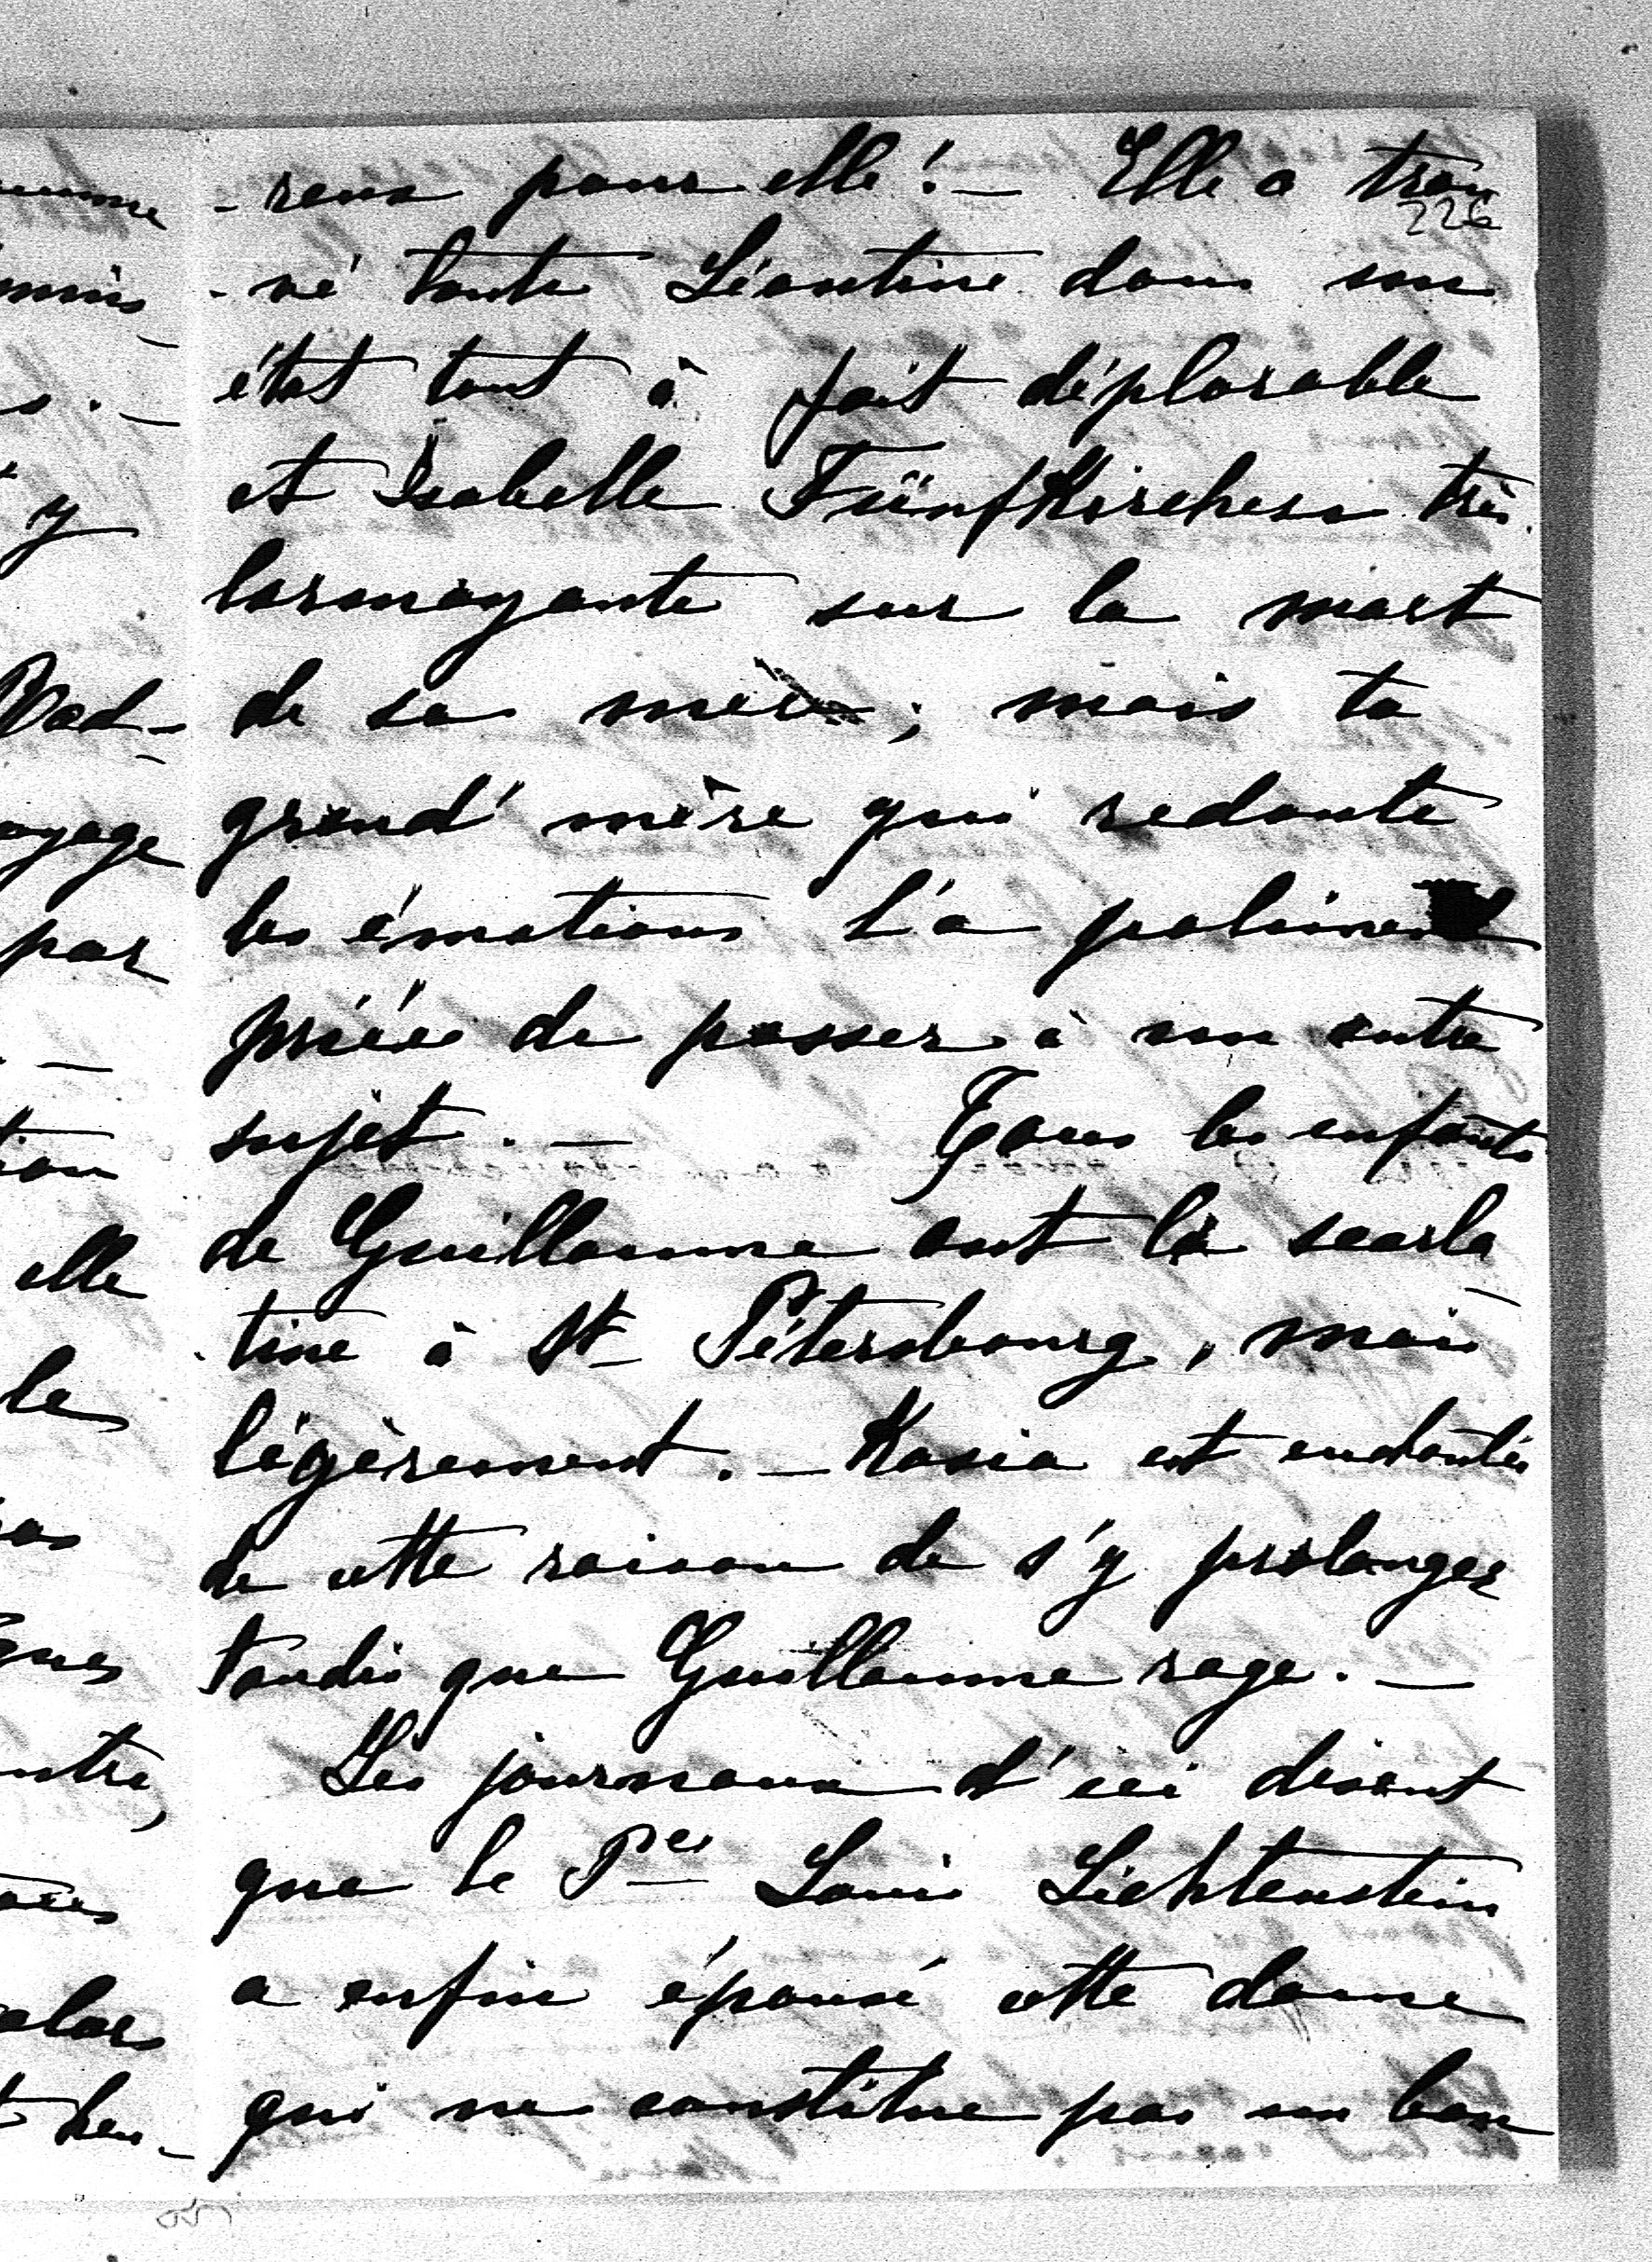 -reux pour elle! — Elle a trou
226
-vé tante Léontine dans un
état tout à fait déplorable
et Isabelle Fünfkirchen très
larmoyante sur la mort
de sa mère; mais ta
grand'mère qui redoute
les émotions l'a poliment
priée de passer à un autre
sujet. — Tous les enfants
de Guillaume ont la scarla
-tine à St Pétersbourg, mais
légèrement. — Kasia est enchantée
de cette raison de s'y prolonger
tandis que Guillaume rage. —
Les journaux d'ici disent
que le Pce Louis Liechtenstein
a enfin épousé cette dame
qui ne constitue pas un bon